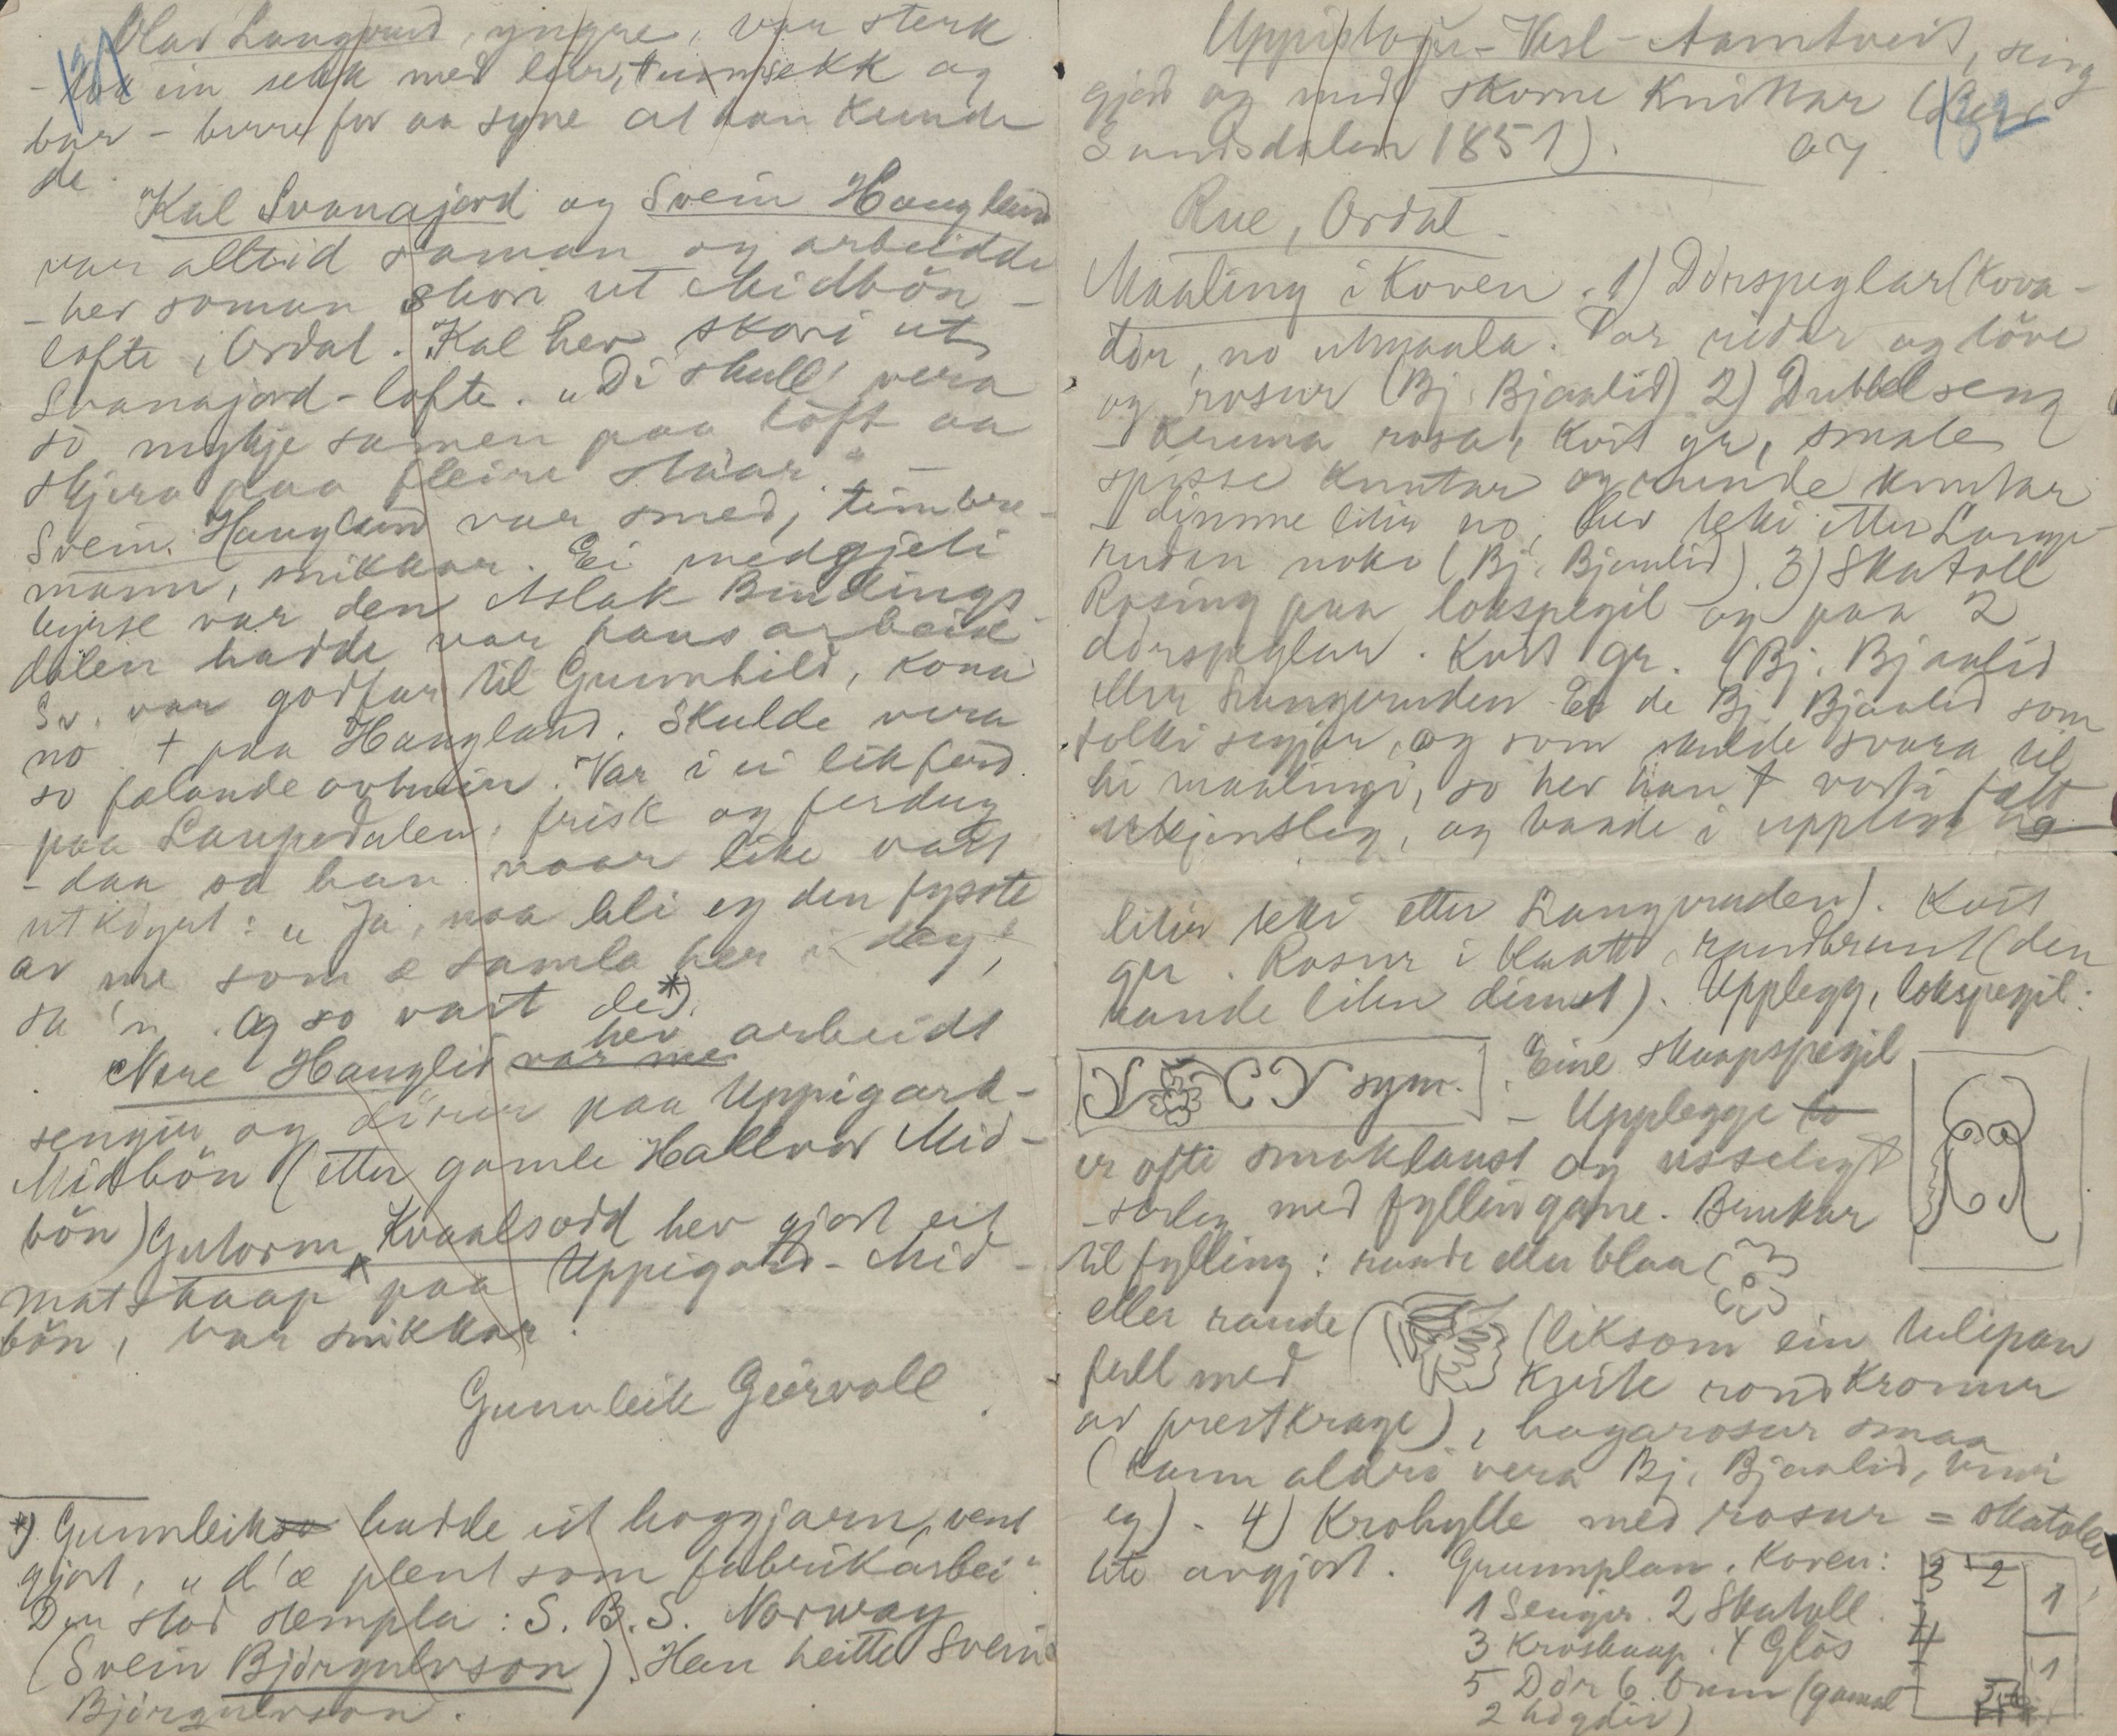 Olav Langerud, yngre, var sterk
- tok ein sekk med  og
bar - berre for aa syne at han kunde
de.
Kal Svanajord og Svein Haugland
var alltid saman og arbeidde
- hev saman skori ut Midbön-
lofte, Ordal. Kal hev skori ut
Svanajord-lofte. „Di skull' vera
so mykje samen paa löft aa
skjera paa fleire staar." -
Svein Haugland var smed, timbre-
mann, snikkar. Ei medgjeti
byrse var den Aslak Bindings-
dalen hadde var hans arbeid
Sv. var godfar til Gunnhild, kona
no + paa Haugland. Skulde vera
so  Var i ei likferd
paa Laupedalen, frisk og ferdug
- daa sa han naar like vart
utköyrt: „Ja, naa bli eg den fysste
av me som æ samla her i dag",
sa 'n. Og so vart de *).
Nere Hauglid var me hev arbeidt
sengju og dörar paa Uppigard-
Midbön (etter gamle Hallvor Mid-
bön) Gutorm Kvaalsodd hev gjort eit
matskaap paa Uppigard-Mid-
bön, var snikkar.
Gunnleik Geirvoll.
*) Gunnleik hadde eit hoggjarn, vent
gjort, „d'æ plent som fabrikarbei".
Der stod stempla: S.B.S. Norway
(Svein Björgulvson). Han heitte Svein
Björgulvson.
Uppistog-Vesl-Aamtveit, seng
gjord og med skorne knottar (
Sundsdalen 1851). 07
32
Rue, Ordal.
Maaling i Koven. 1) Dörspeglar (Kova-
dör, no . Var rider og löve
og rosur (Bj. Bjaalid) 2) Dubbelseng
- Kruma rosa, kvit gr, smale
spisse knutar og runde knutar
- dimme liter no, hev teki etter Lange-
ruden noko (Bj. Bjaalid). 3) Skatoll
Rosing paa lokspegil og paa 2
dörspeglar. Kvit gr. (Bj. Bjaalid
eller Langeruden. Er de Bj. Bjaalid som
folki segjer, og som skulde svara til
hi maalingi, so hev han vorti fælt
ukjensleg, og baade i upplegg og
liter teki etter Langeruden). Kvit
gr. Rosur i blaatt, raudbrunt (den
raude liten dimst). Upplegg, lokspegil:
sym. Eine skaapspegil
- Upplegge
er ofte smaklaust og usselegt
- særleg med fyllingane. Brukar
til fylling: raude eller blaa
eller raude (liksom ein tulipan
full med kvite rondkronur
av prestkrage), hagarosur smaa
(kann aldri vera Bj. Bjaalid,
eg). 4) Krohylle med rosur = skatolle,
lite avgjort. Grunnplan. Koven:
1 Sengir. 2 Skatoll.
3 Kroskaap. 4 Glös
5 Dör 6. Omn (gamal
2 högdir)
3 2 1
4
1
5